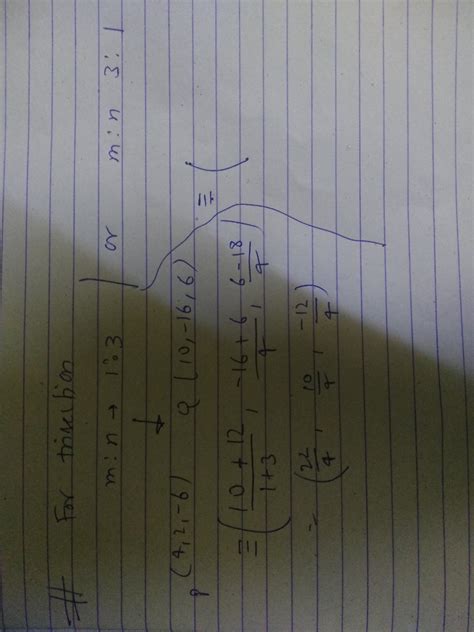 # For trisection
m:n → 1:3 / or m:n 3:1
↓
P (4,2,-6) Q (10,-16,6) = (
= ( (10+12)/(1+3) , (-16+6)/4 , (6-18)/4 )
= ( 22/4 , 10/4 , -12/4 )